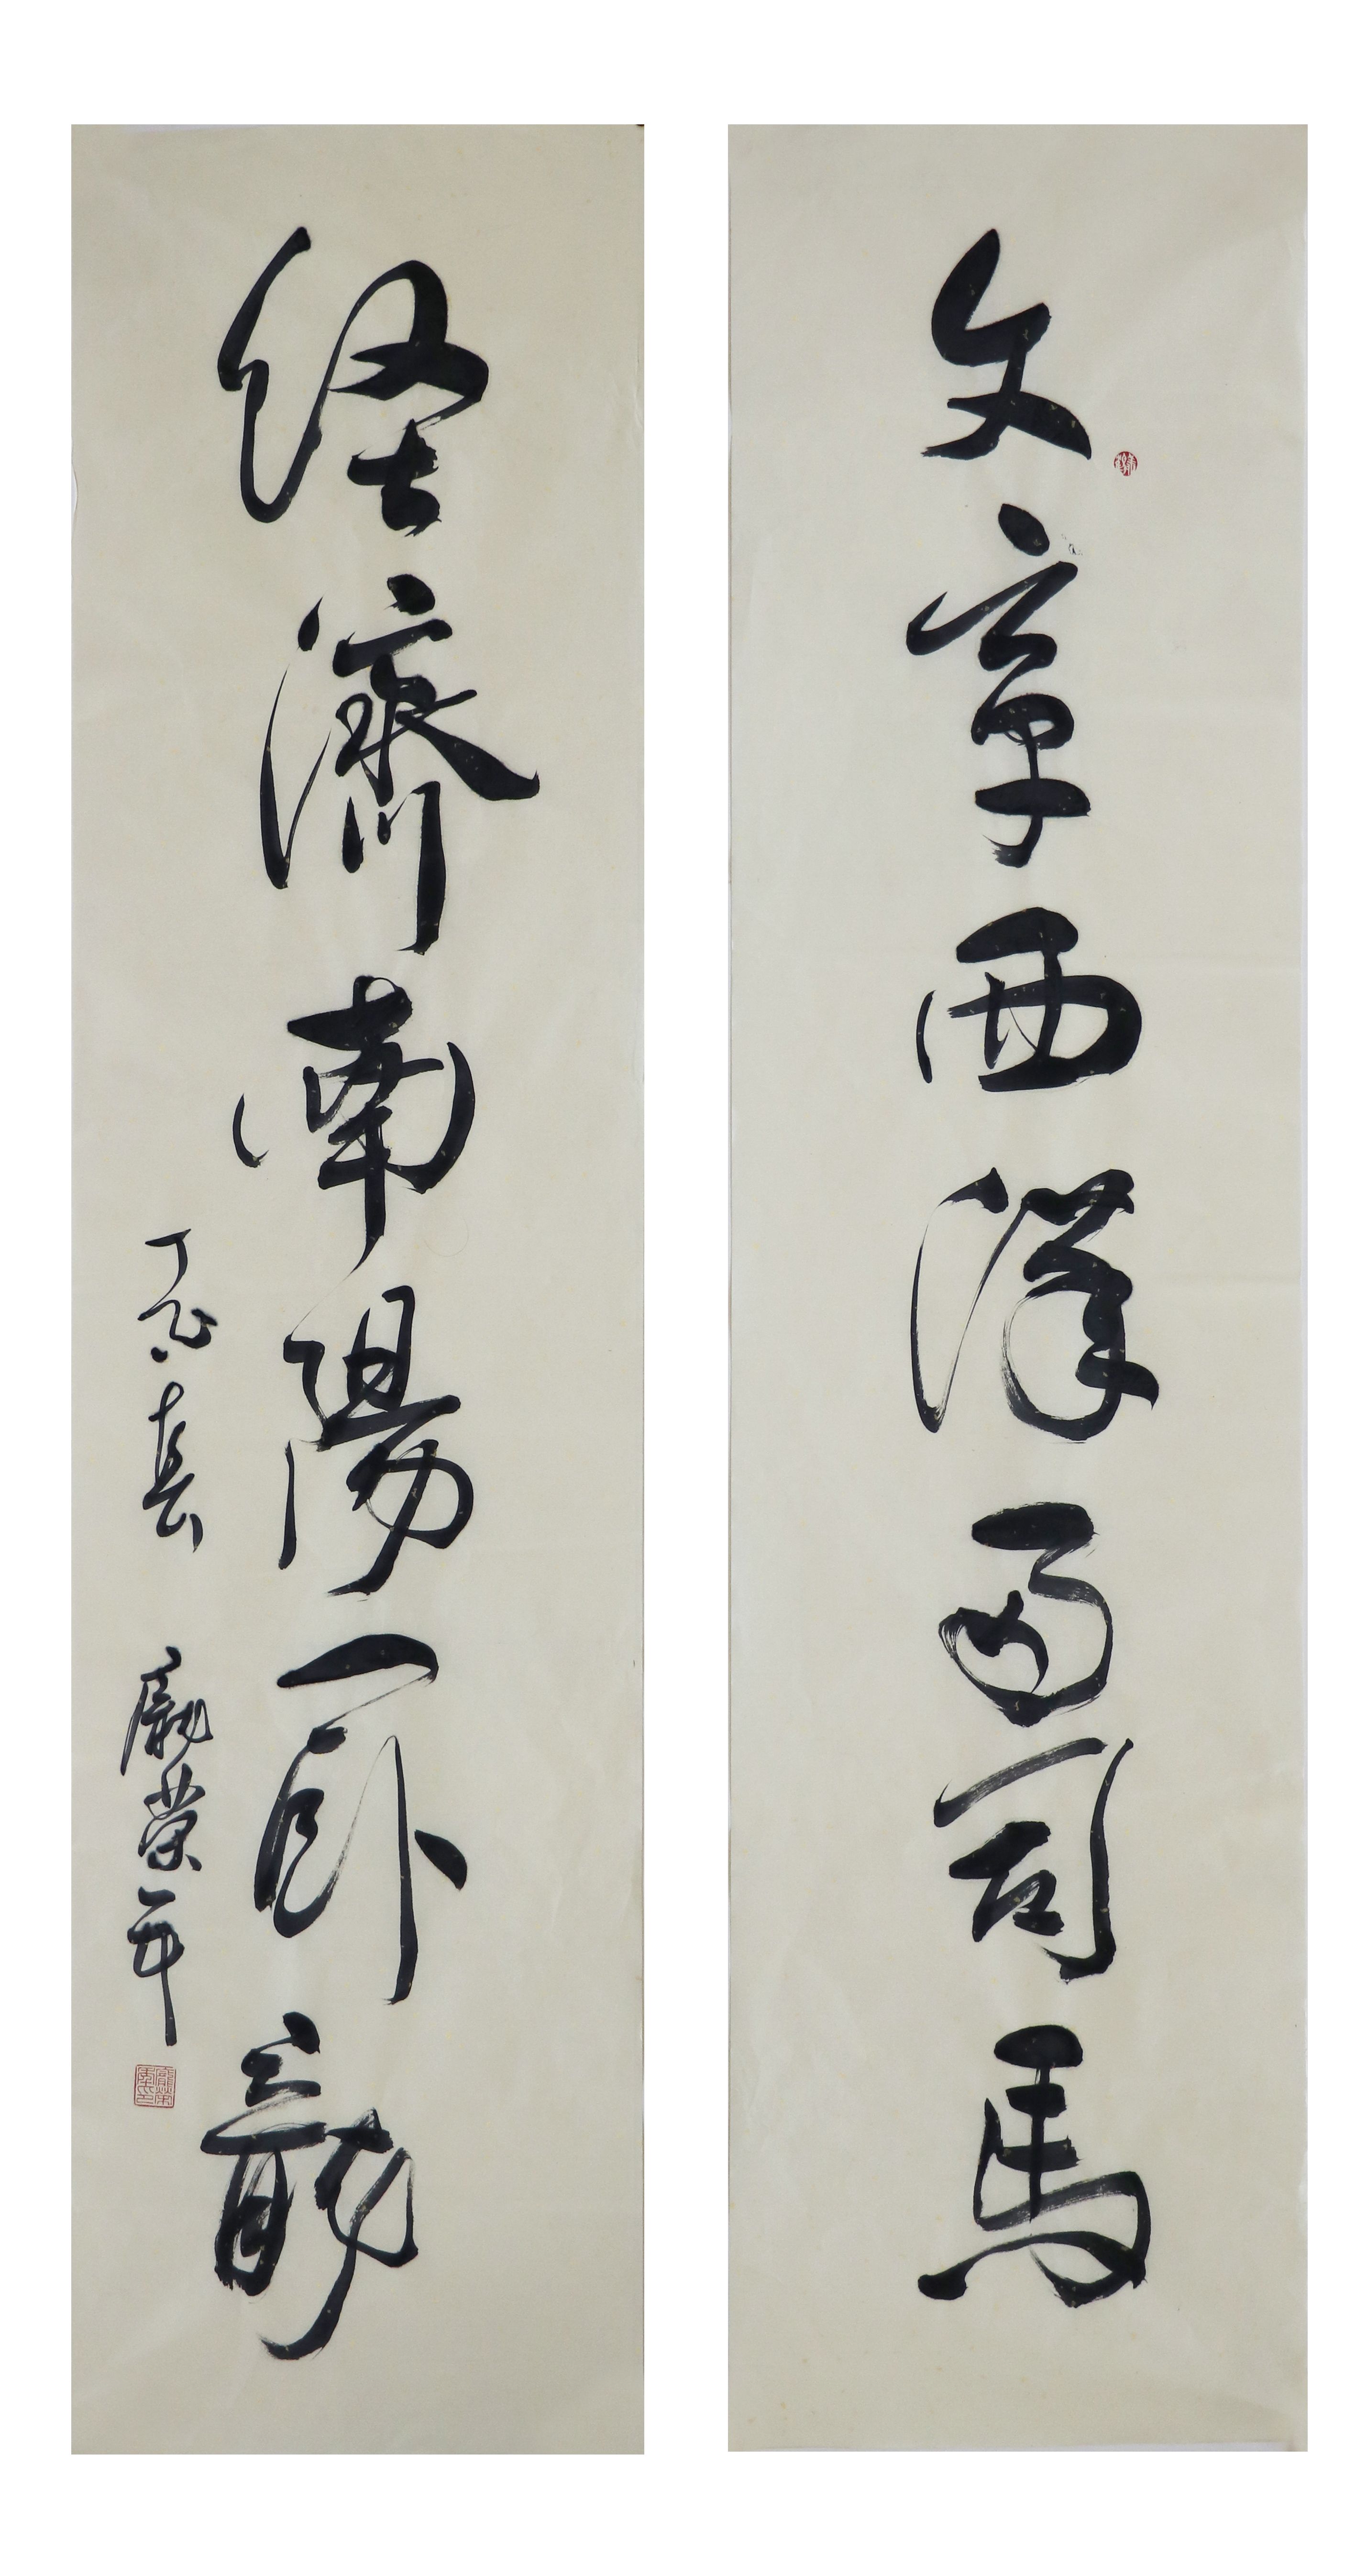 文章西漢兩司馬
經濟南陽一卧龍
丁酉春 龐榮年